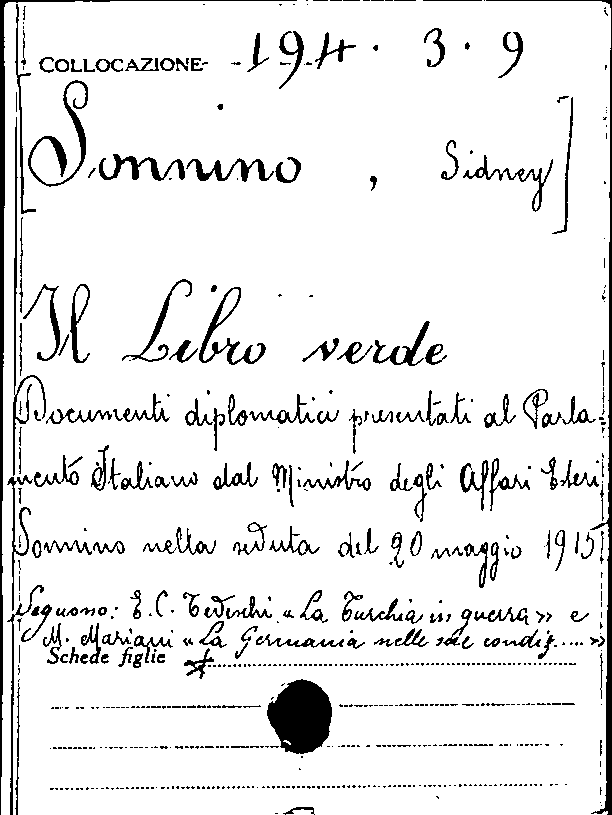 COLLOCAZIONE 194. 3. 9
[Sonnino, Sidney]
Il Libro verde
Documenti diplomatici presentati al Parla=
mento Italiano dal Ministro degli Affari Esteri
Sonnino nella seduta del 20 maggio 1915
Seguono: E. C. Tedeschi «La Turchia in guerra» e
M. Mariani «La Germania nelle sue condiz.....»
Schede figlie